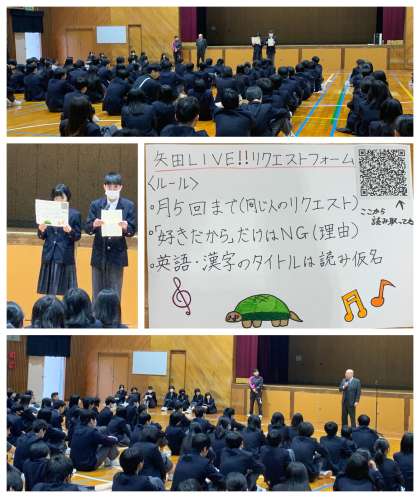 矢田LIVE!!リクエストフォーム
〈ルール〉
・月5回まで(同じ人のリクエスト)
・「好きだから」だけはNG(理由)
・英語・漢字のタイトルは読み仮名
ここから
読み取ってね